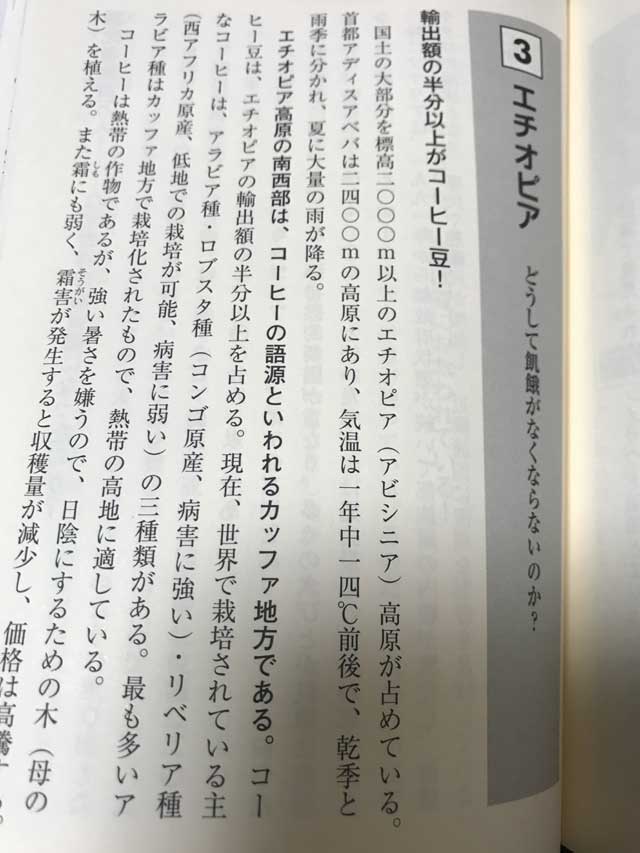 3 エチオピア どうして飢餓がなくならないのか？
輸出額の半分以上がコーヒー豆！
国土の大部分を標高二〇〇〇m以上のエチオピア（アビシニア）高原が占めている。
首都アディスアベバは二四〇〇mの高原にあり、気温は一年中一四℃前後で、乾季と
雨季に分かれ、夏に大量の雨が降る。
エチオピア高原の南西部は、コーヒーの語源といわれるカッファ地方である。コー
ヒー豆は、エチオピアの輸出額の半分以上を占める。現在、世界で栽培されている主
なコーヒーは、アラビア種・ロブスタ種（コンゴ原産、病害に強い）・リベリア種
（西アフリカ原産、低地での栽培が可能、病害に弱い）の三種類がある。最も多いア
ラビア種はカッファ地方で栽培化されたもので、熱帯の高地に適している。
コーヒーは熱帯の作物であるが、強い暑さを嫌うので、日陰にするための木（母の
木）を植える。また霜にも弱く、霜害が発生すると収穫量が減少し、価格は高騰する。
しも
そうがい